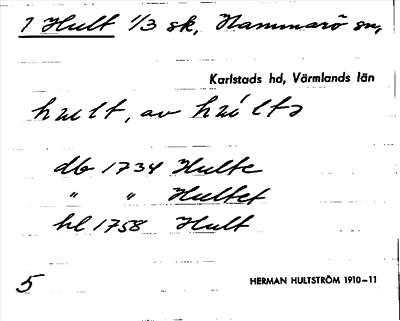 1 Hult 1/3 sk, Hammarö sn,
Karlstads hd, Värmlands län
hult, av hults
db 1734 Hulte
" " Hultet
hl 1758 Hult
5
HERMAN HULTSTRÖM 1910–11